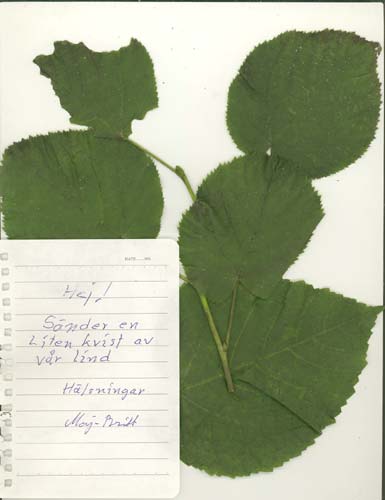 Hej!
Sänder en
Liten kvist av
vår lind
Hälsningar
Maj-Britt